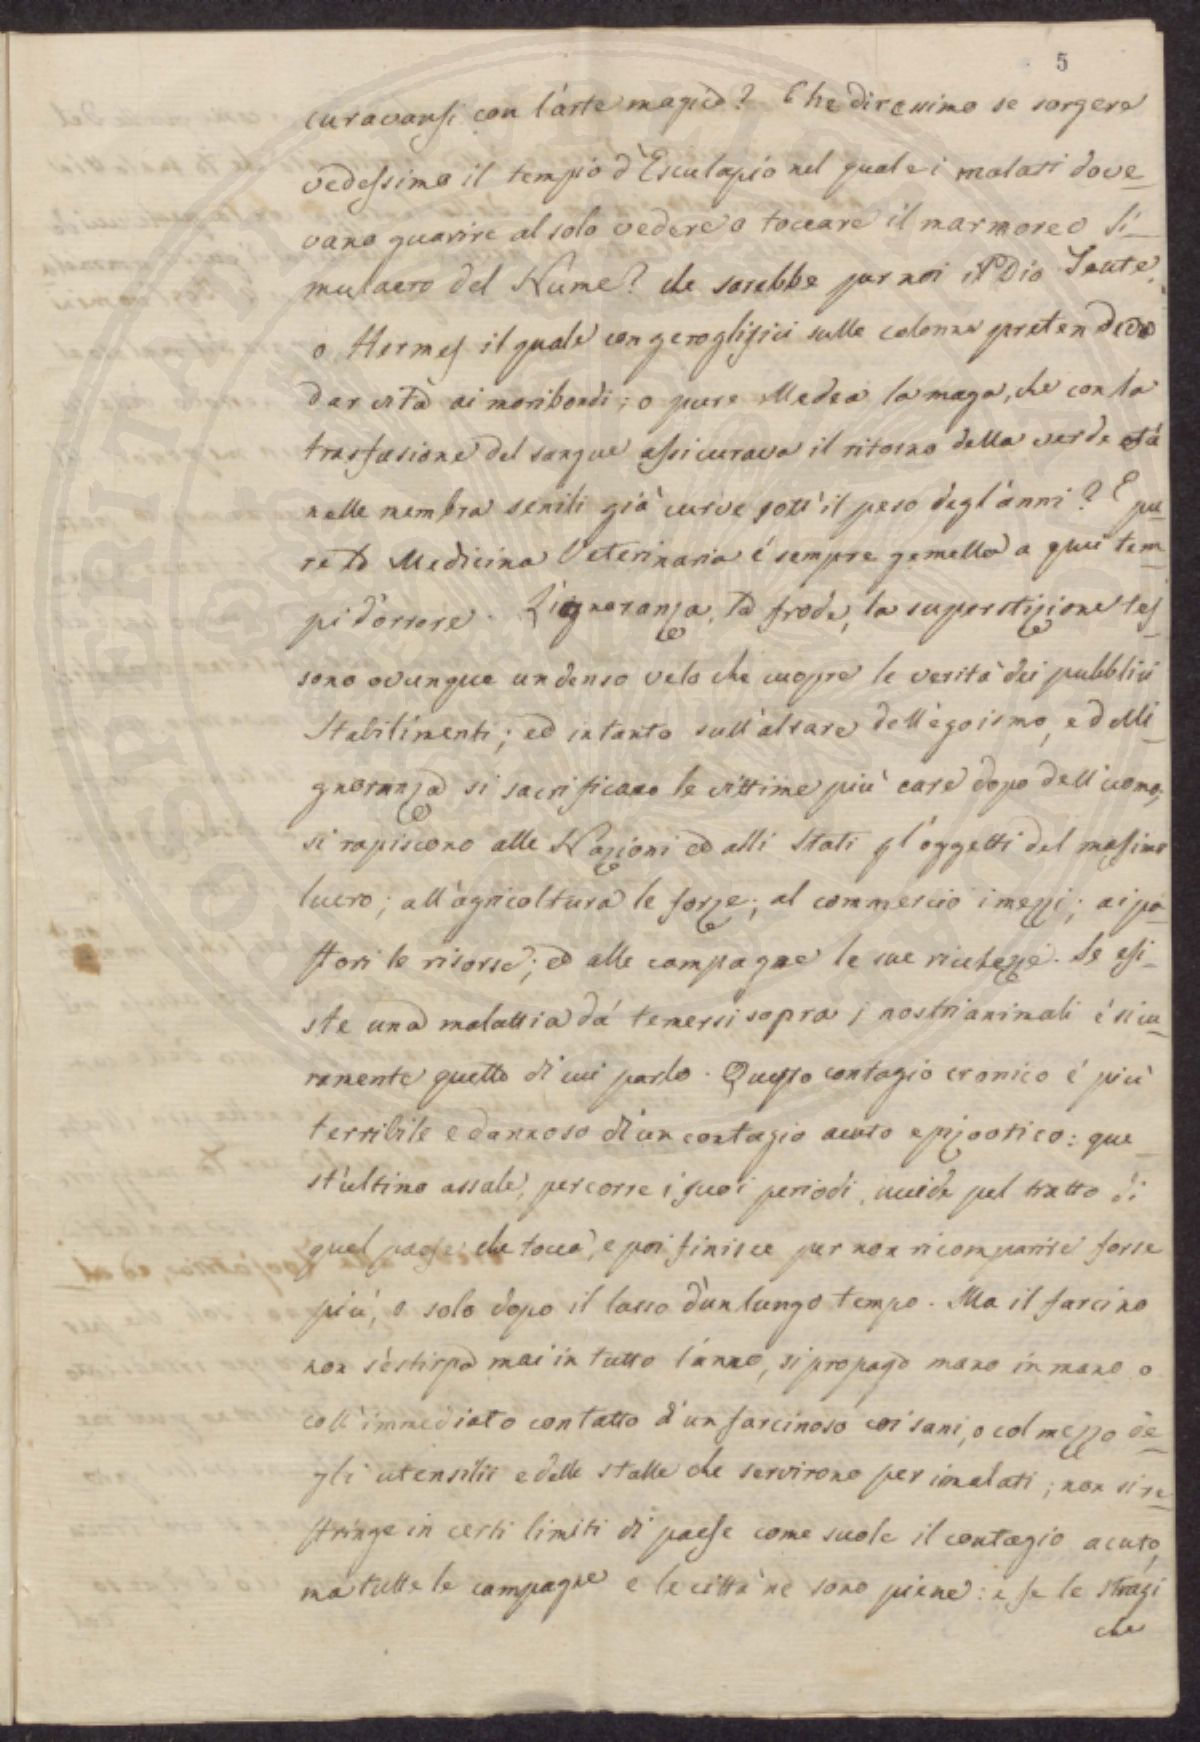 5
curavansi con l'arte magica? Che diressimo se sorgere
vedessimo il tempio d'Esculapio nel quale i malati dove-
vano guarire al solo vedere o toccare il marmoreo Si-
mulacro del Nume? che sarebbe per noi il Dio Teute,
o Hermes il quale con geroglifici sulle colonne pretendeva
dar vita ai moribondi; o pure Medea la maga, che con la
trasfusione del sangue assicurava il ritorno della verde età
nelle membra senili già curve sott'il peso degl'anni? E pu-
re la Medicina Veterinaria é sempre gemella a quei tem-
pi d'orrore. L'ignoranza, la frode, la superstizione tes-
sono ovunque un denso velo che cuopre le verità dei pubblici
Stabilimenti; ed intanto sull'altare dell'egoismo, e dell'i-
gnoranza si sacrificano le vittime più care dopo dell'uomo;
si rapiscono alle Nazioni ed alli Stati gl'oggetti del massimo
lucro; all'agricoltura le forze; al commercio i mezzi; ai pa-
stori le risorse; ed alle campagne le sue ricchezze. Se esi-
ste una malattia dá temersi sopra i nostri animali è sicu-
ramente quella di cui parlo. Questo contagio cronico é più
terribile e dannoso di un contagio acuto epizootico: que-
st'ultimo assale, percorre i suoi periodi, uccide pel tratto di
quel paese che tocca, e poi finisce per non ricomparire forse
più, o solo dopo il lasso d'un lungo tempo. Ma il farcino
non s'estirpa mai in tutto l'anno, si propaga mano in mano o
coll'immediato contatto d'un farcinoso coi sani, o col mezzo de-
gli utensilii e delle stalle che servirono per i malati; non si re-
stringe in certi limiti di paese come suole il contagio acuto,
ma tutte le campagne e le città ne sono piene: e se le stragi
che